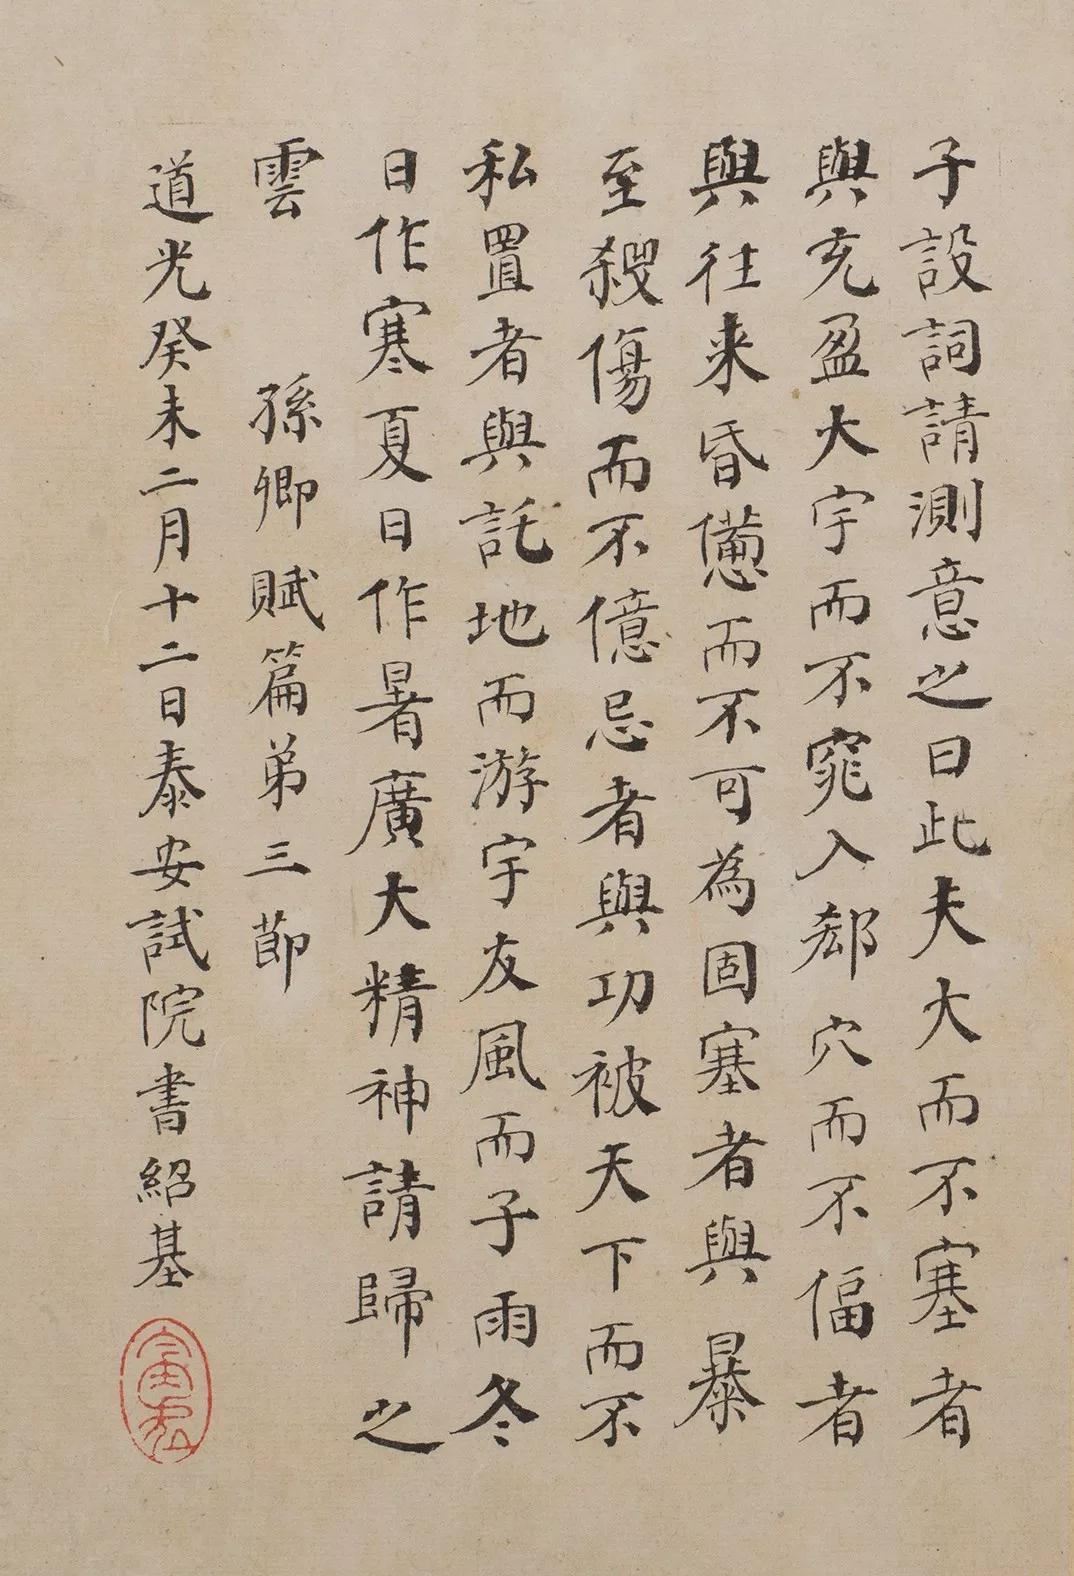 子設詞請測意之曰此夫大而不塞者
與充盈大宇而不窕入郄穴而不偪者
與往来昏憊而不可為固塞者與暴
至殺傷而不億忌者與功被天下而不
私置者與託地而游宇友風而子雨冬
日作寒夏日作暑廣大精神請歸之
雲 孫卿賦篇弟三節
道光癸未二月十二日泰安試院書紹基